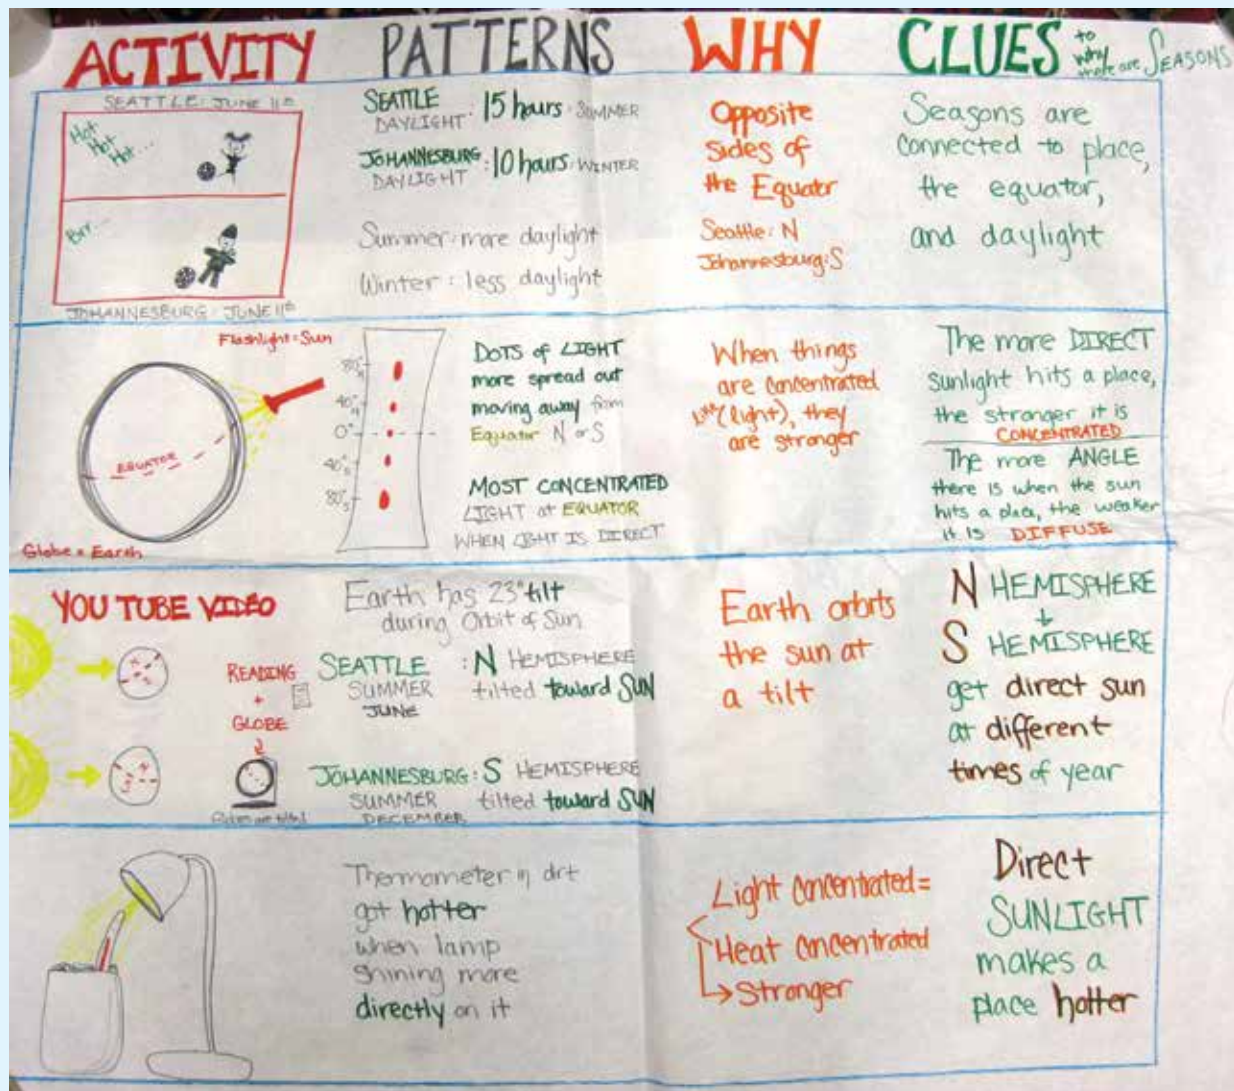 ACTIVITY PATTERNS WHY CLUES to why there are SEASONS
SEATTLE: JUNE 11th
Hot
Hot
Hot...
Brr...
JOHANNESBURG: JUNE 11th
SEATTLE
DAYLIGHT : 15 hours : SUMMER
JOHANNESBURG
DAYLIGHT : 10 hours : WINTER
Summer: more daylight
Winter: less daylight
Opposite
sides of
the Equatr
Seattle: N
Johannesburg: S
Seasons are
connected to place,
the equator,
and daylight
Flashlight = Sun
EQUATOR
Globe = Earth
80°N
40°N
0°
40°S
80°S
DOTS of LIGHT
more spread out
moving away from
Equator N or S
MOST CONCENTRATED
LIGHT at EQUATOR
WHEN LIGHT IS DIRECT
When things
are concentrated
(light), they
are stronger
The more DIRECT
sunlight hits a place,
the stronger it is
CONCENTRATED
The more ANGLE
there is when the sun
hits a place, the weaker
it is DIFFUSE
YOU TUBE VIDEO
N
S
N
S
READING
+
GLOBE
Earth has 23° tilt
during Orbit of Sun
SEATTLE : N HEMISPHERE
SUMMER tilted toward SUN
JUNE
JOHANNESBURG : S HEMISPHERE
SUMMER tilted toward SUN
DECEMBER
Earth orbits
the sun at
a tilt
N HEMISPHERE
+
S HEMISPHERE
get direct sun
at different
times of year
Thermometer in dirt
got hotter
when lamp
shining more
directly on it
Light concentrated =
Heat concentrated
→ Stronger
Direct
SUNLIGHT
makes a
place hotter